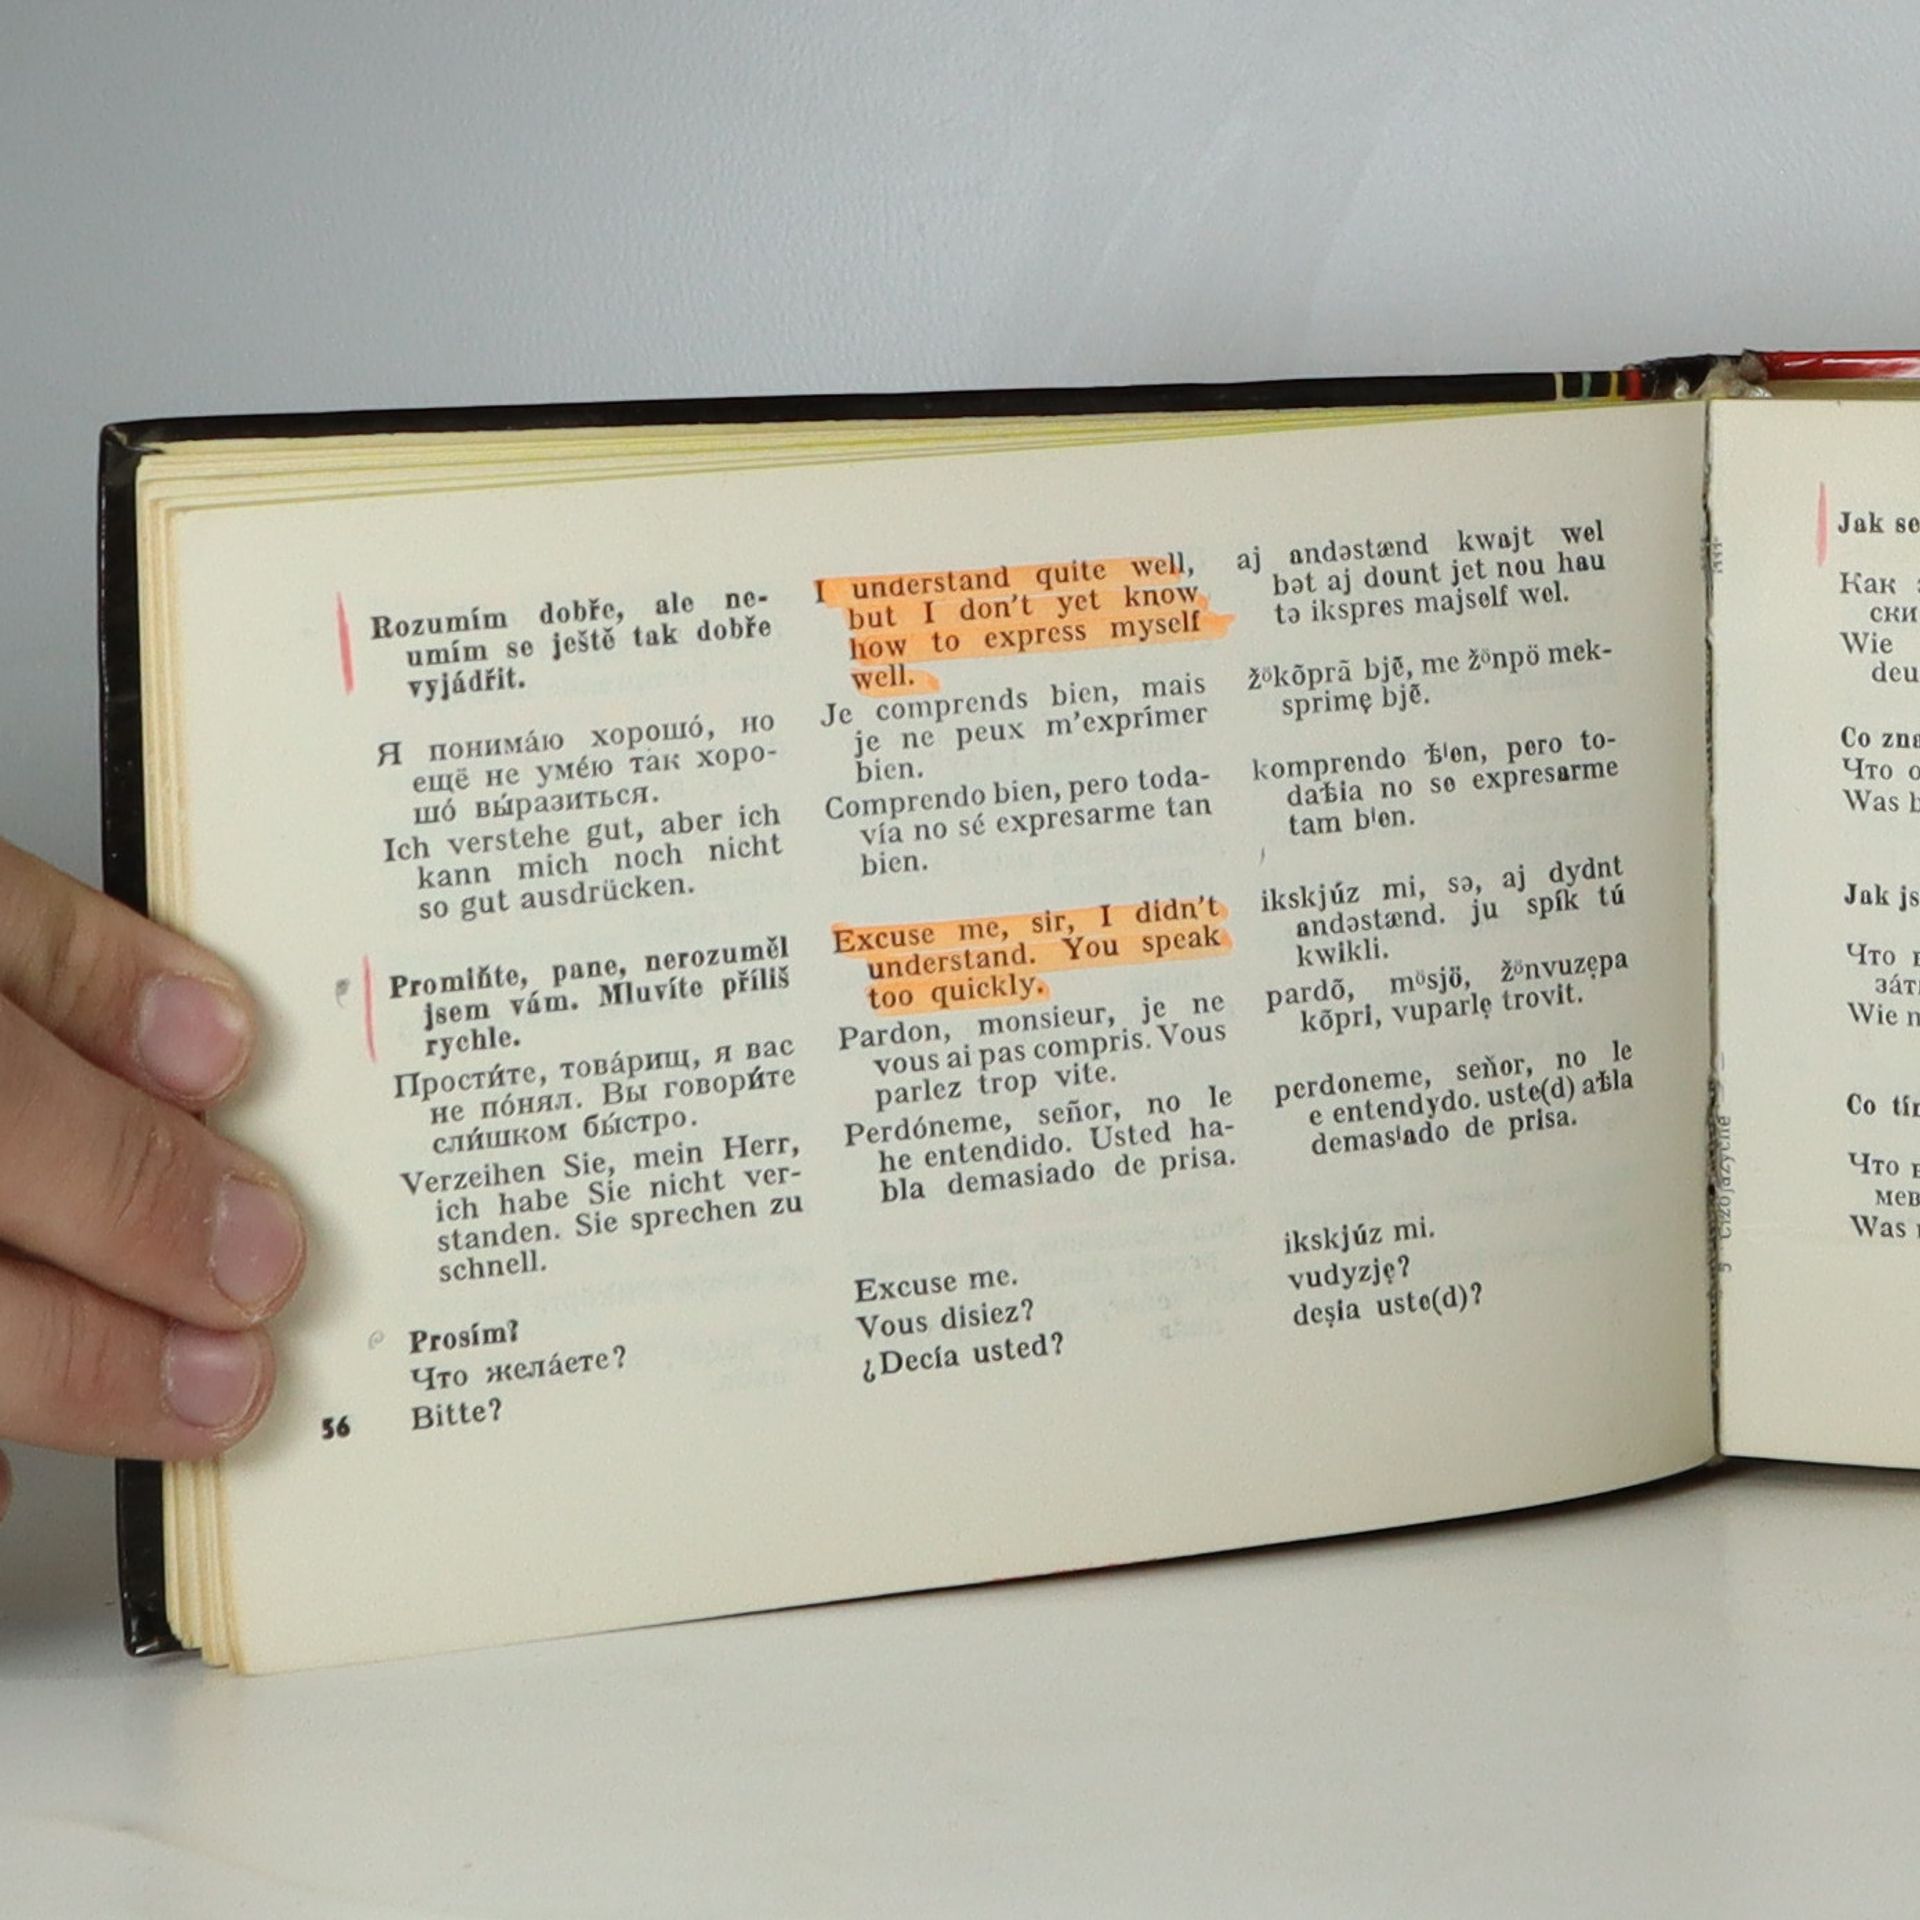 Rozumím dobře, ale ne-
umím se ještě tak dobře
vyjádřit.
Я понима́ю хорошо́, но
ещё не уме́ю так хоро-
шо́ вы́разиться.
Ich verstehe gut, aber ich
kann mich noch nicht
so gut ausdrücken.
Promiňte, pane, nerozuměl
jsem vám. Mluvíte příliš
rychle.
Прости́те, това́рищ, я вас
не по́нял. Вы говори́те
сли́шком бы́стро.
Verzeihen Sie, mein Herr,
ich habe Sie nicht ver-
standen. Sie sprechen zu
schnell.
Prosím?
Что жела́ете?
Bitte?
56
I understand quite well,
but I don't yet know
how to express myself
well.
Je comprends bien, mais
je ne peux m'exprímer
bien.
Comprendo bien, pero toda-
vía no sé expresarme tan
bien.
Excuse me, sir, I didn't
understand. You speak
too quickly.
Pardon, monsieur, je ne
vous ai pas compris. Vous
parlez trop vite.
Perdóneme, señor, no le
he entendido. Usted ha-
bla demasiado de prisa.
Excuse me.
Vous disiez?
¿Decía usted?
aj andəstænd kwajt wel
bət aj dount jet nou hau
tə ikspres majself wel.
žökõprã bjẽ, me žönpö mek-
sprimę bjẽ.
komprendo ƀien, pero to-
daƀia no se expresarme
tam bien.
ikskjúz mi, sə, aj dydnt
andəstænd. ju spík tú
kwikli.
pardõ, mösjö, žönvuzępa
kõpri, vuparlę trovit.
perdoneme, seňor, no le
e entendydo. uste(d) aƀla
demasiado de prisa.
ikskjúz mi.
vudyzję?
deşia uste(d)?
Jak se
Как
ски
Wie
deu
Co zna
Что о
Was b
Jak js
Что
за́т
Wie n
Co
Что
мев
Was